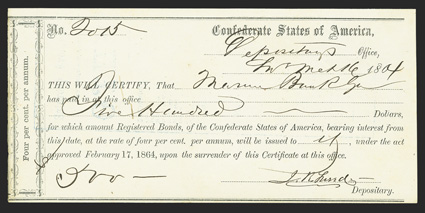 Four per cent. per annum.
No. 2015
Confederate States of America,
Depository Office,
Mch 16, 1864
THIS WILL CERTIFY, That Marine Bank
has paid in at this office
Five Hundred Dollars,
for which amount Registered Bonds, of the Confederate States of America, bearing interest from
this date, at the rate of four per cent. per annum, will be issued to it under the act
approved February 17, 1864, upon the surrender of this Certificate at this office.
$500 —
Depositary.